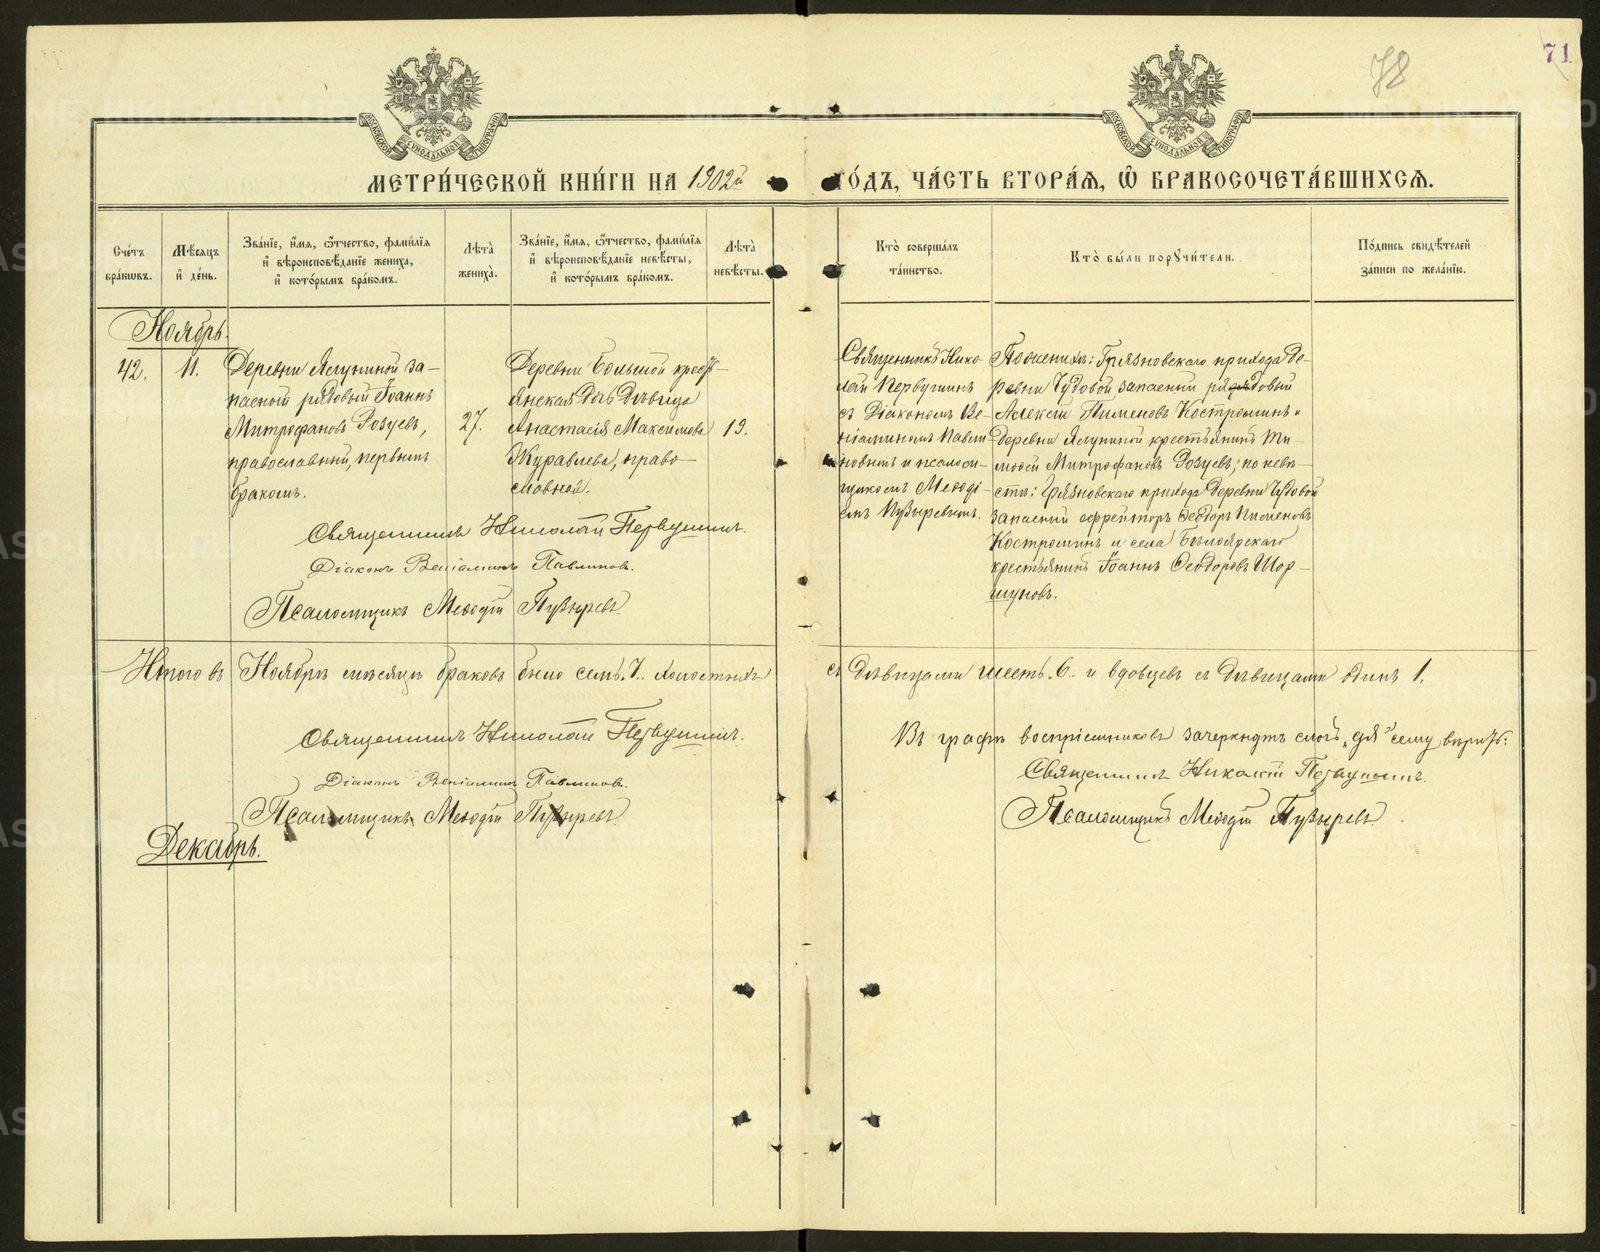 71
78
МОСКОВСКОЙ СѴНОДАЛЬНОЙ ТИПОГРАФІИ
МОСКОВСКОЙ СѴНОДАЛЬНОЙ ТИПОГРАФІИ
МЕТРИ́ЧЕСКОЙ КНИ́ГИ НА 1902й
ГО́ДЪ, ЧА́СТЬ ВТОРА́Я, Ѿ БРАКОСОЧЕТА́ВШИХСЯ.
Сче́тъ
бра́ковъ.
Мѣ́сяцъ
и де́нь.
Зва́нїе, и́мя, ѻ́тчество, фами́лїя
и вѣроисповѣ́данїе жениха̀,
и кото́рымъ бра́комъ.
Лѣ́та
жениха̀.
Зва́нїе, и́мя, ѻ́тчество, фами́лїя
и вѣроисповѣ́данїе невѣ́сты,
и кото́рымъ бра́комъ.
Лѣ́та
невѣ́сты.
Кто̀ соверша́лъ
та́инство.
Кто̀ бы́ли порꙋчи́тели.
По́дпись свидѣ́телей
за́писи по жела́нїю.
Ноябрь.
42.
11.
Деревни Ялуниной за-
пасной рядовый Іоаннъ
Митрофановъ Розуевъ,
православный, первымъ
бракомъ.
27.
Деревни Большой крест-
янская дочь девица
Анастасія Максимова
Журавлева, право-
славной.
19.
Священникъ Нико-
лай Первушинъ
съ Діакономъ Ве-
ніаминомъ Павли-
новымъ и псалом-
щикомъ Меѳоді-
емъ Пузыревымъ.
По женихѣ: Грязновскаго прихода де-
ревни Чудовой запасный рядовый
Алексѣй Пименовъ Костроминъ и
деревни Ялуниной крестьянинъ Ти-
моѳей Митрофановъ Розуевъ; по невѣ-
стѣ: Грязновскаго прихода деревни Чудовой
запасный ефрейторъ Ѳеодоръ Пименовъ
Костроминъ и села Бѣлоярскаго
крестьянинъ Іоаннъ Ѳеодоровъ Шор-
шуновъ.
Священникъ Николай Первушинъ.
Діаконъ Веніаминъ Павлиновъ.
Псаломщикъ Меѳодій Пузыревъ
Итого въ Ноябрѣ мѣсяцѣ браковъ было семь. 7. холостыхъ
съ дѣвицами шесть. 6. и вдовцевъ съ дѣвицами одинъ 1.
Священникъ Николай Первушинъ.
Діаконъ Веніаминъ Павлиновъ.
Псаломщикъ Меѳодій Пузыревъ
Въ графѣ воспріемниковъ зачеркнутъ слогъ „дя" сему вѣрить.
Священникъ Николай Первушинъ.
Псаломщикъ Меѳодій Пузыревъ.
Декабрь.
METRIKI.GASO-URAL.RU